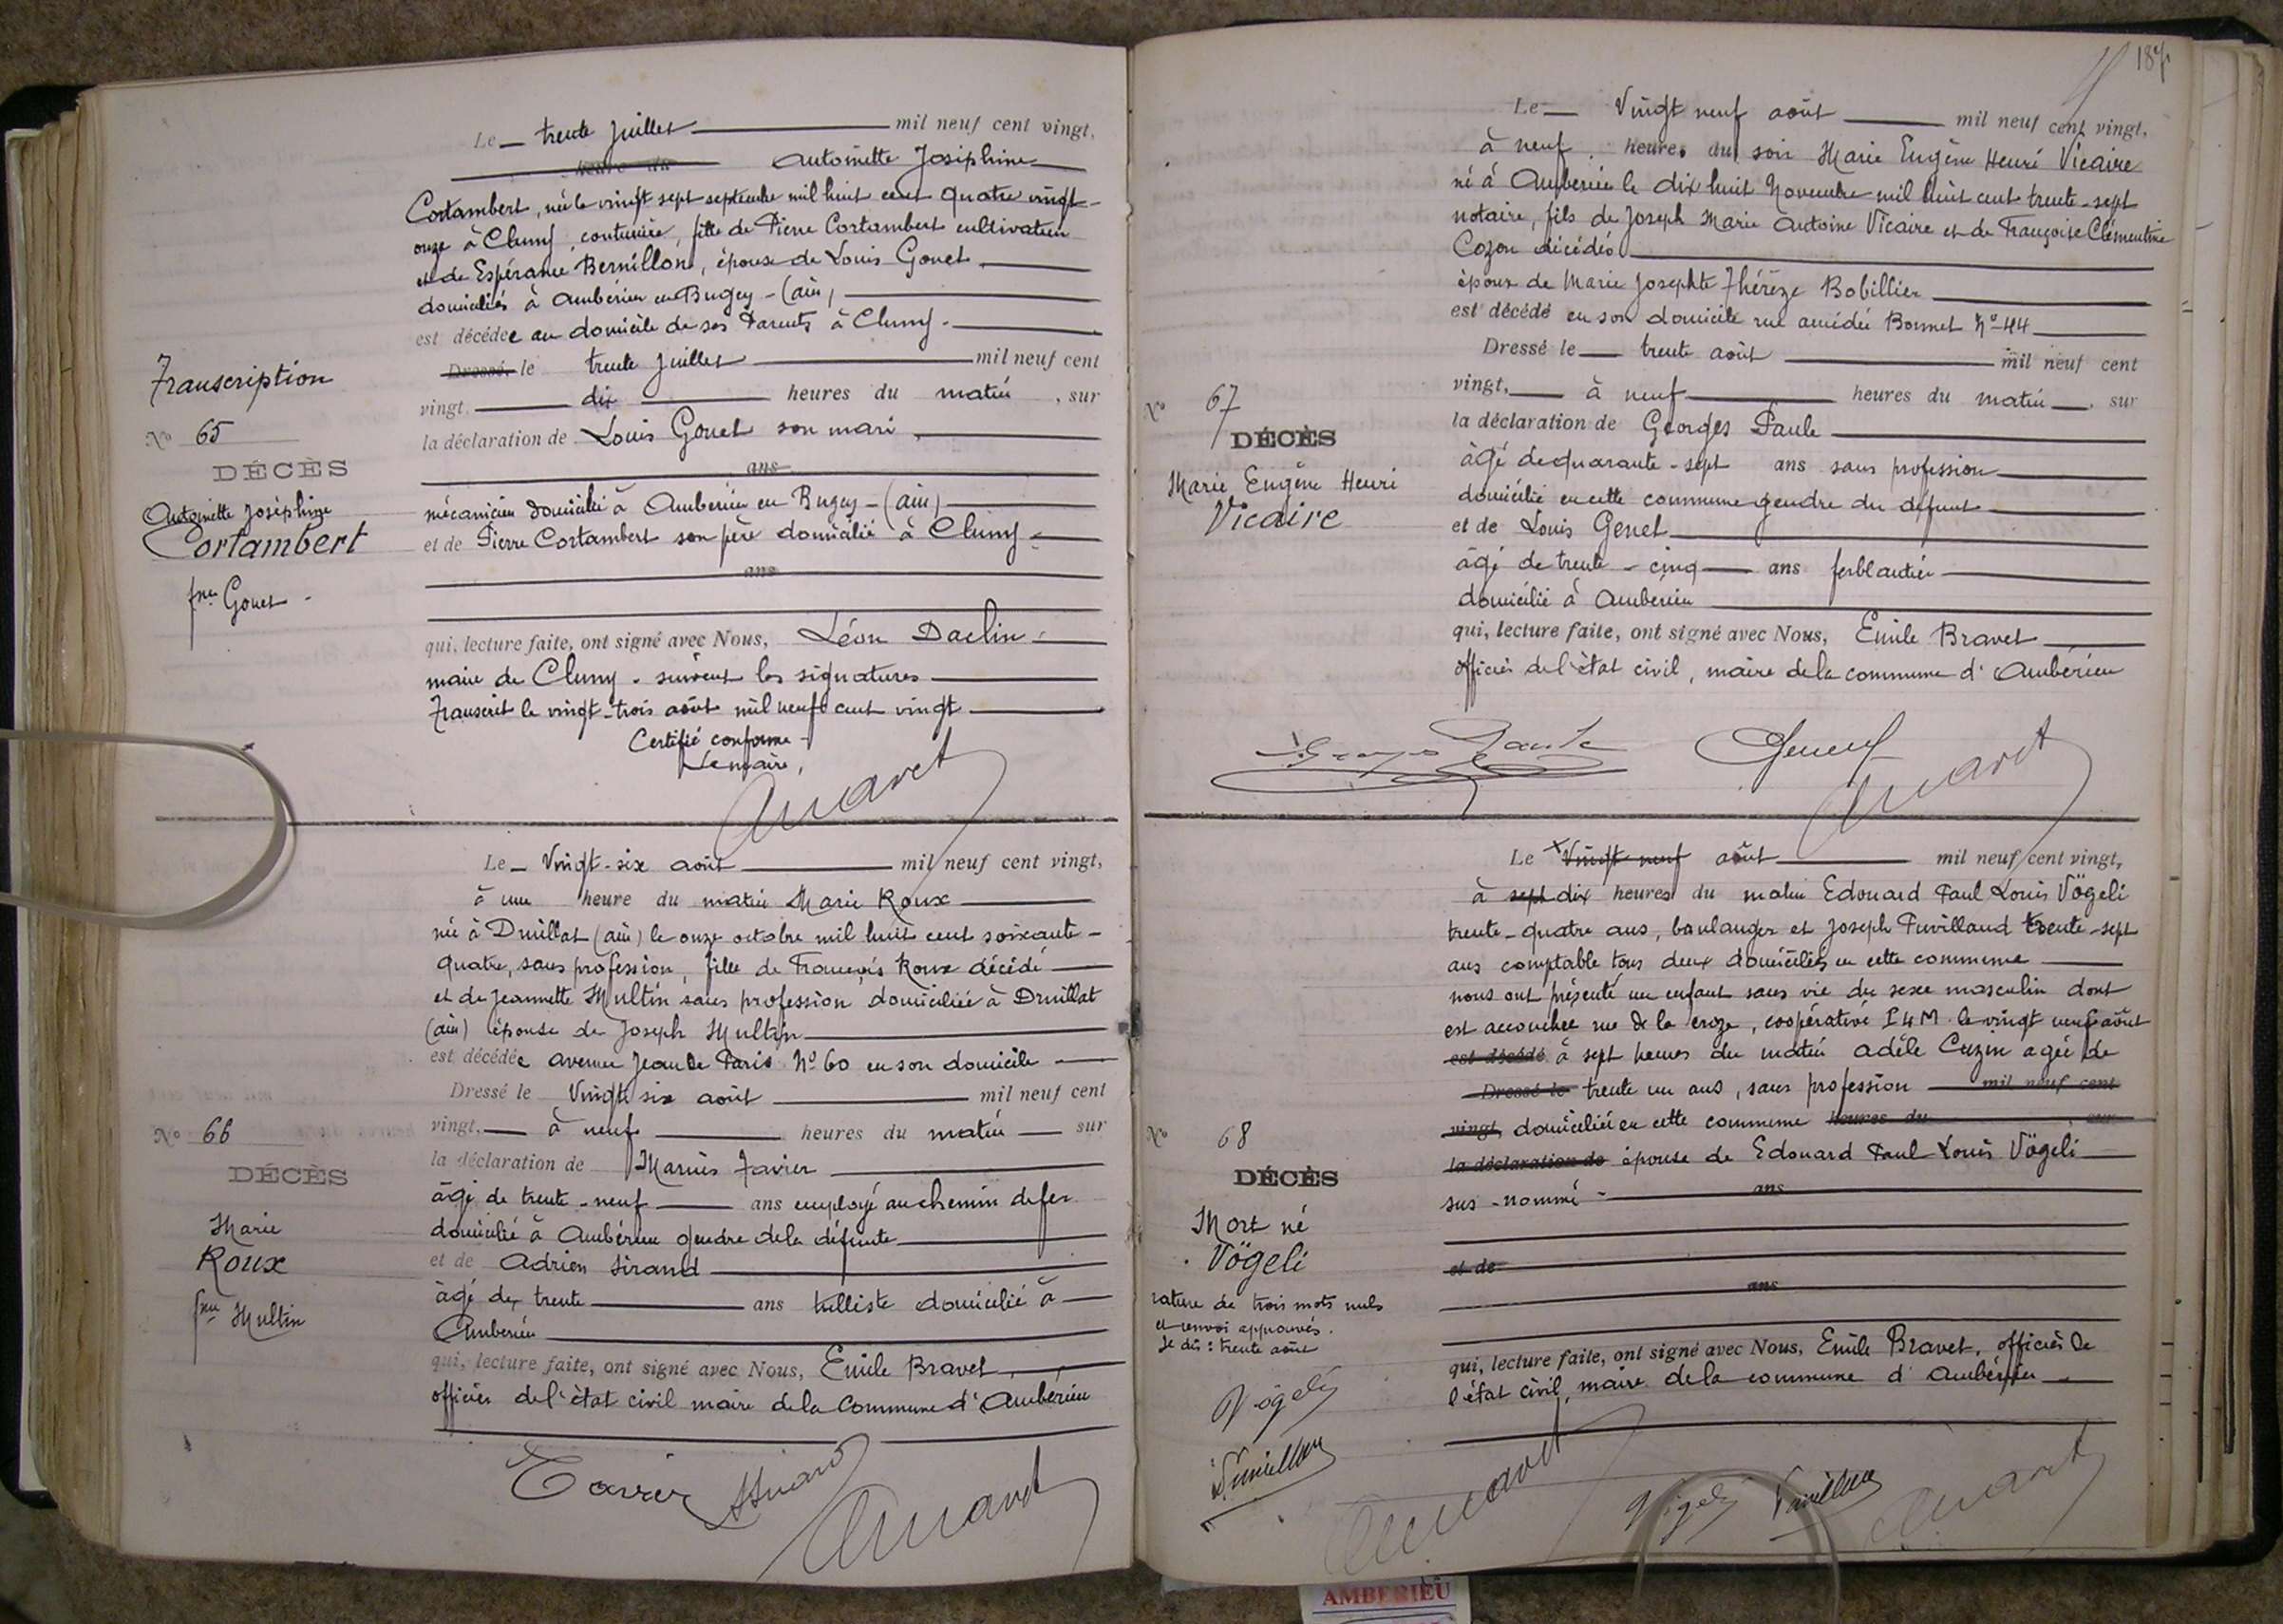 Le trente juillet mil neuf cent vingt,
heure du Antoinette Joséphine
Cortambert, née le vingt sept septembre mil huit cent quatre vingt-
onze à Cluny, couturière, fille de Pierre Cortambert cultivateur
et de Espérance Bernillon, épouse de Louis Gonet
domiciliés à Ambérieu en Bugey - (ain)
est décédée au domicile de ses Parents à Cluny.
Dressé, le trente juillet mil neuf cent
vingt, dix heures du matin, sur
la déclaration de Louis Gonet son mari,
ans
mécanicien domicilié à Ambérieu en Bugey - (ain)
et de Pierre Cortambert son père domicilié à Cluny
ans
qui, lecture faite, ont signé avec Nous, Léon Daclin
maire de Cluny. suivent les signatures
Transcrit le vingt-trois août mil neuf cent vingt
Certifié conforme
Le maire,
Transcription
No 65
DÉCÈS
Antoinette Joséphine
Cortambert
fme Gonet
Le Vingt-six août mil neuf cent vingt,
à une heure du matin Marie Roux
née à Druillat (ain) le onze octobre mil huit cent soixante-
quatre, sans profession, fille de François Roux décédé
et de Jeannette Multin sans profession, domiciliée à Druillat
(ain) épouse de Joseph Multin
est décédée avenue Jean de Paris No 60 en son domicile
Dressé le Vingt six août mil neuf cent
vingt, à neuf heures du matin sur
la déclaration de Marius Tavier
âgé de trente-neuf ans employé au chemin de fer
domicilié à Ambérieu gendre de la défunte
et de Adrien Sirand
âgé de trente ans tulliste domicilié à
Ambérieu
qui, lecture faite, ont signé avec Nous, Emile Bravet,
officier de l'état civil maire de la Commune d'Ambérieu
No 66
DÉCÈS
Marie
Roux
fme Multin
Bravet
187
Le Vingt neuf août mil neuf cent vingt,
à neuf heures du soir Marie Eugène Henri Vicaire
né à Ambérieu le dix huit Novembre mil huit cent trente-sept
notaire, fils de Joseph Marie Antoine Vicaire et de Françoise Clémentine
Cozon décédés
époux de Marie Josephte Thérèze Bobillier
est décédé en son domicile rue amédée Bonnet No 44
Dressé le trente août mil neuf cent
vingt, à neuf heures du matin, sur
la déclaration de Georges Paule
âgé de quarante-sept ans sans profession
domicilié en cette commune gendre du défunt
et de Louis Genet
âgé de trente-cinq ans ferblantier
domicilié à Ambérieu
qui, lecture faite, ont signé avec Nous, Emile Bravet
officier de l'état civil, maire de la commune d'Ambérieu
No 67
DÉCÈS
Marie Eugène Henri
Vicaire
Georges Paule Genet Bravet
Le x Vingt neuf août mil neuf cent vingt,
à sept dix heures du matin Edouard Paul Louis Vögeli
trente-quatre ans, boulanger et Joseph Tuvilland trente-sept
ans comptable tous deux domiciliés en cette commune
nous ont présenté un enfant sans vie du sexe masculin dont
est accouchée rue de la croze, coopérative P L M. le vingt neuf août
est décédé à sept heures du matin adèle Cuzin agée de
Dressé le trente un ans, sans profession mil neuf cent
vingt, domiciliée en cette commune heures du sur
la déclaration de épouse de Edouard Paul Louis Vögeli
sus-nommé ans
et de
ans
qui, lecture faite, ont signé avec Nous, Emile Bravet, officier de
l'état civil, maire de la commune d'Ambérieu
No 68
DÉCÈS
Mort né
Vögeli
rature de trois mots nuls
et renvoi approuvés.
Je dis : trente août
Vögeli
Bravet Vögeli Bravet
AMBERIEU